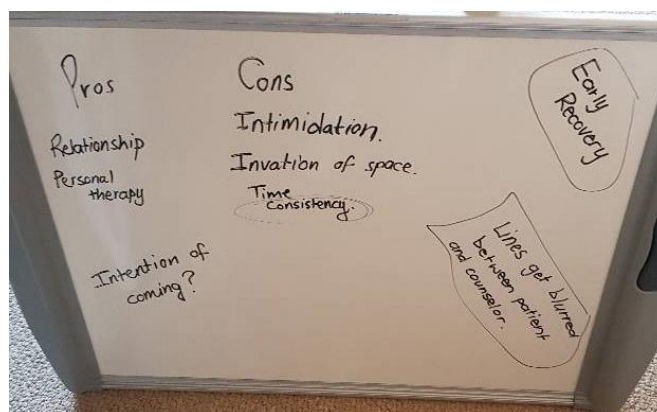 Pros
Relationship
Personal
therapy
Intention of
coming?
Cons
Intimidation.
Invation of space.
Time
Consistency.
Early
Recovery
Lines get blurred
between patient
and counselor.